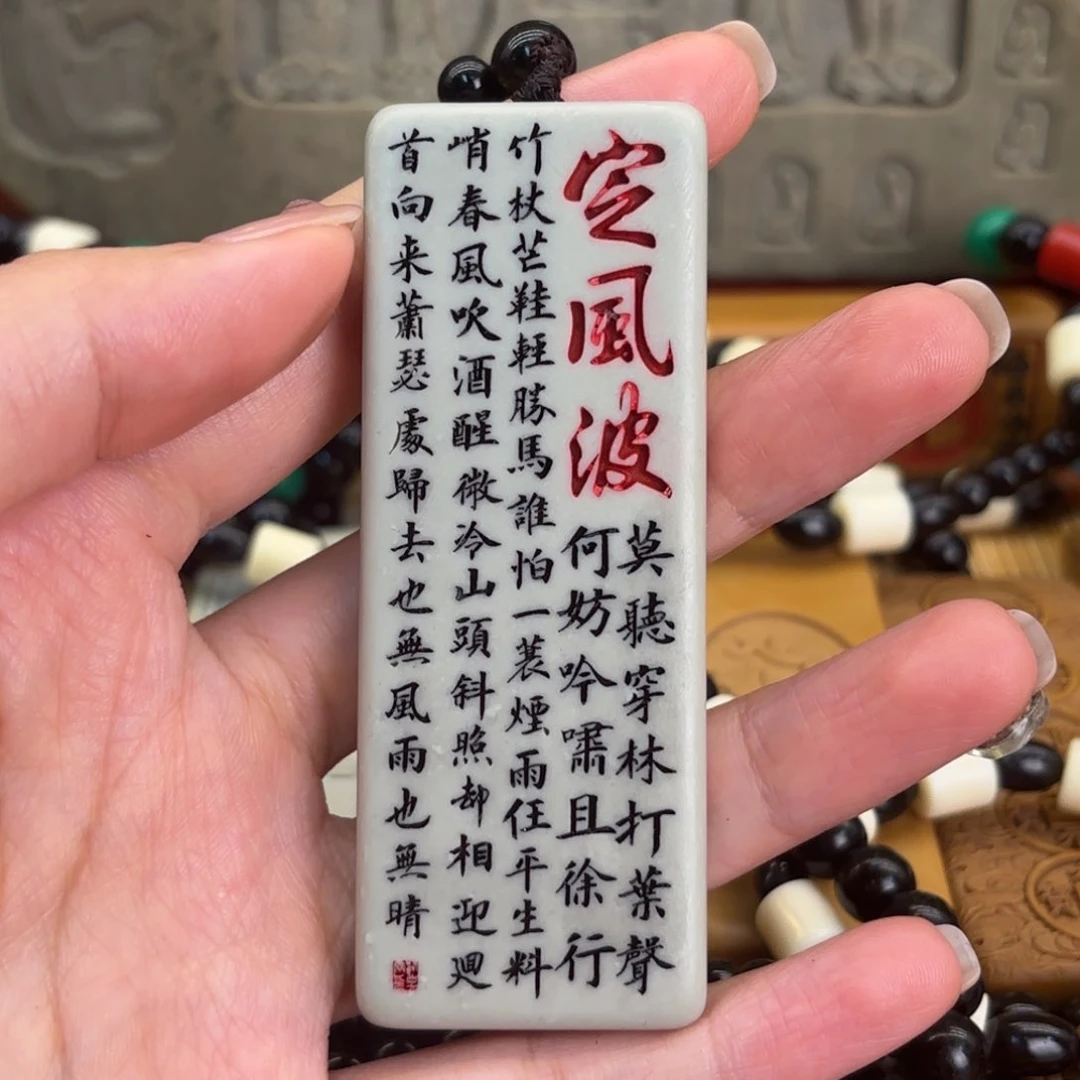 定風波
莫聽穿林打葉聲
何妨吟嘯且徐行
竹杖芒鞋輕勝馬誰怕一蓑煙雨任平生料
峭春風吹酒醒微冷山頭斜照却相迎迴
首向来蕭瑟處歸去也無風雨也無晴